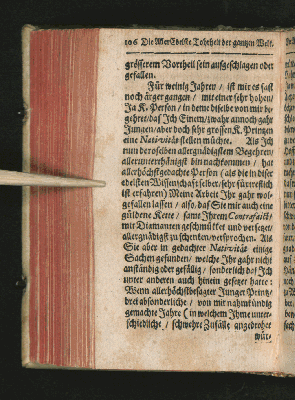 106 Die AllerEdelste Tohrheit der gantzen Welt.
grösserem Vortheil sein aufgeschlagen oder
gefallen.
Für wenig Jahren / ist mir es fast
noch ärger gangen / mit einer sehr hohen /
Ja K. Person / in deme dieselbe von mir be-
gehret / daß Ich Einem / zwahr annoch gahr
Jungen / aber doch sehr grossen K. Printzen
eine Nativität stellen möchte. Als Ich
nun deroselben allergnädigstem Begehren /
allerunterthänigst bin nachkommen / hat
allerhöchstgedachte Person (als die in dieser
edelsten Wissenschaft selber / sehr fürtreflich
ist erfahren) Meine Arbeit Ihr gahr wol-
gefallen lassen / also / daß Sie mir auch eine
güldene Kette / samt Ihrem Contrafaict /
mit Diamanten geschmükket und versetzet /
allergnädigst zu schenken / versprochen. Als
Sie aber in gedachter Nativität einige
Sachen gefunden / welche Ihr gahr nicht
anständig oder gefällig / sonderlich daß Ich
unter anderen auch hinein gesetzet hatte:
Wenn allerhöchstbesagter Junger Printz /
drei absonderliche / von mir nahmkündig
gemachte Jahre (in welchem Ihme unter-
schiedliche / schwehre Zufälle angedrohet
wür-